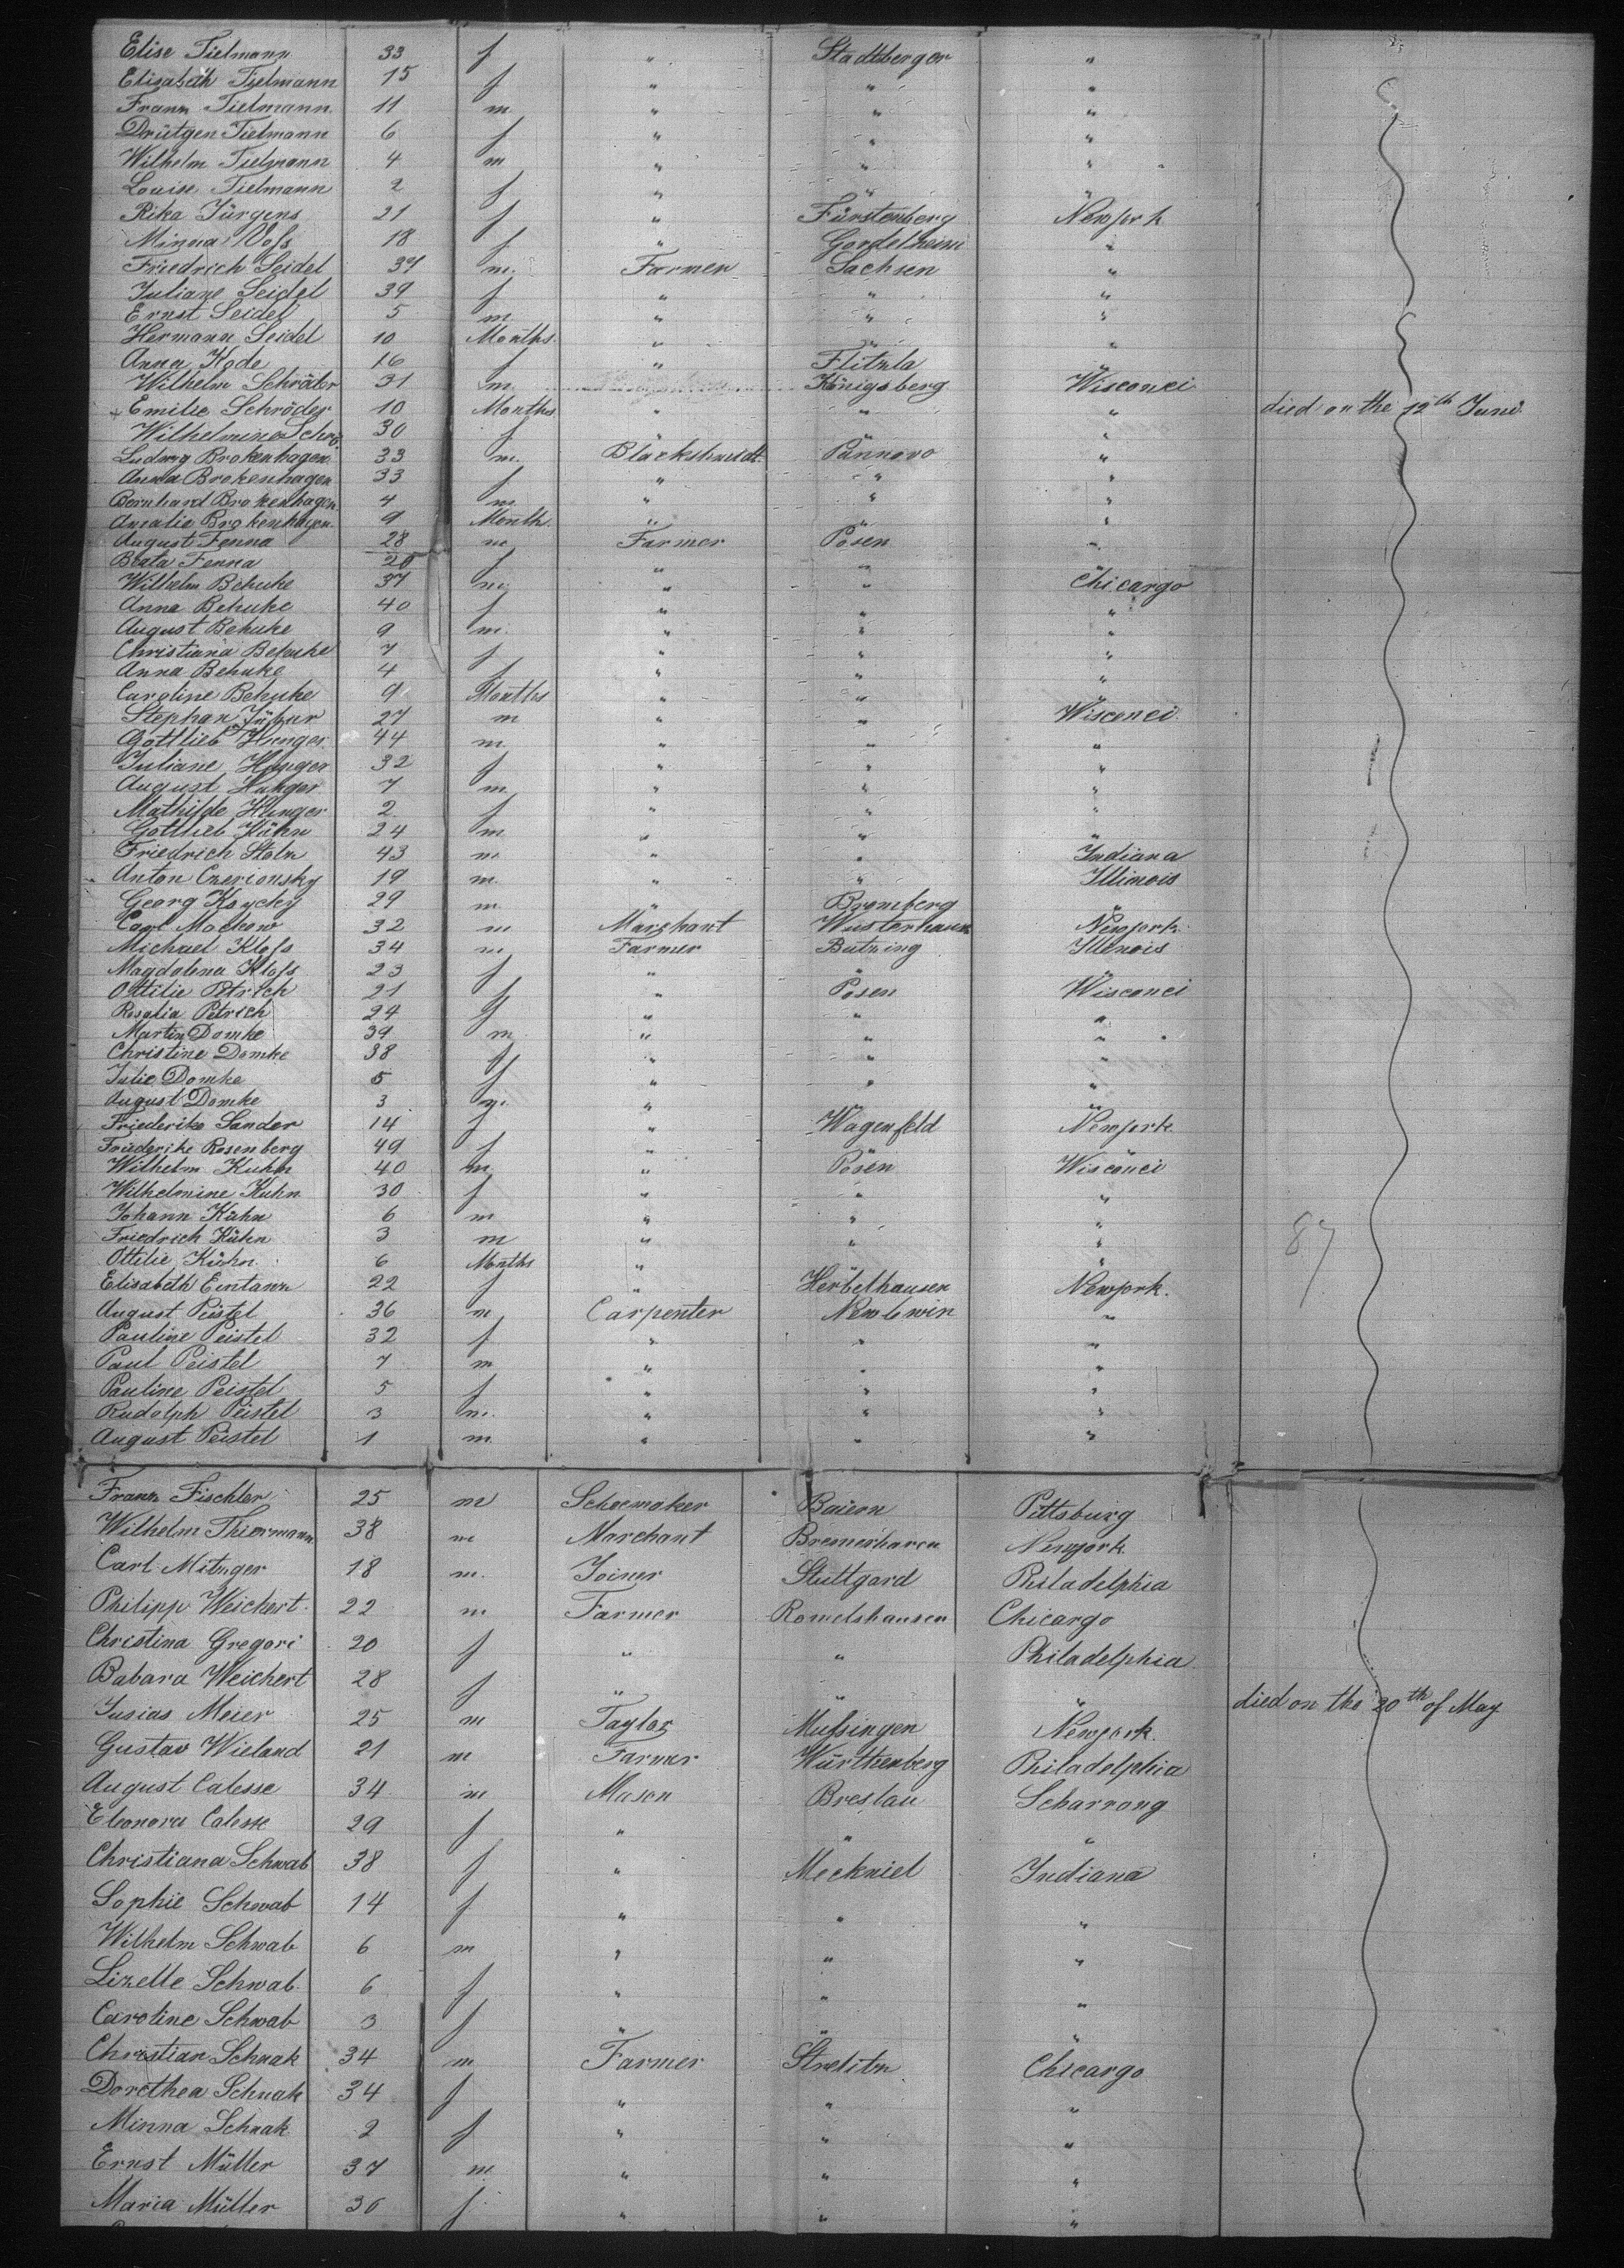 Elise Tielmann 33 f " Stadtberger "
Elisabeth Tielmann 15 f " " "
Franz Tielmann 11 m " " "
Drütgen Tielmann 6 f " " "
Wilhelm Tielmann 4 m " " "
Louise Tielmann 2 f " " "
Rika Jürgens 21 f " Fürstenberg Newjork
Minna Vofs 18 f " "
Friedrich Seidel 37 m. Farmer Sachsen "
Juliane Seidel 39 f " " "
Ernst Seidel 5 m " " "
Hermann Seidel 10 Months " " "
Anna Kode 16 f " "
Wilhelm Schröder 31 m Königsberg Wisconci
Emilie Schröder 10 Months " " " died on the 12th June
Wilhelmine 30 f " " "
Ludwig Brokenhagen 33 m. Blackshmidt "
Anna Brokenhagen 33 f " " "
Bernhard Brokenhagen 4 m " " "
Amalie Brokenhagen 9 Month. " " "
August Fenna 28 m Farmer Posen "
Beata Fenna 20 f " "
Wilhelm Behuke 37 m. " " Chicargo
Anna Behuke 40 f " " "
August Behuke 9 m. " " "
Christiana Behuke 7 f " " "
Anna Behuke 4 f " " "
Caroline Behuke 9 Months " "
Stephan 27 m " " Wisconci
Gottlieb Hunger 44 m " " "
Juliane Hunger 32 f " " "
August Hunger 7 m " " "
Mathilde Hunger 2 f " " "
Gottlieb Kühn 24 m " " "
Friedrich Stoln 43 m. " " Indiana
Anton Czerionsky 19 m. " " Illinois
Georg 29 m " Bromberg "
Carl Mochow 32 m Marchant Wusterhausen Newjork
Michael Klofs 34 m Farmer Butzing Illenois
Magdalena Klofs 23 f " " "
Ottilie Petrich 21 f " Posen Wisconci
Rosalia Petrich 24 f " " "
Martin Domke 39 m " " "
Christine Domke 38 f " " "
Julie Domke 5 f " " "
August Domke 3 m. " " "
Friederike Sander 14 f " Wagenfeld Newjork
Friederike Rosenberg 49 f " " "
Wilhelm Kuhn 40 m " Posen Wisconci
Wilhelmine Kuhn 30 f " " "
Johann Kühn 6 m " " "
Friedrich Kühn 3 m " " "
87
Ottilie Kühn 6 Months " " "
Elisabeth Eintann 22 f " Herbelhausen Newjork.
August Peistel 36 m Carpenter "
Pauline Peistel 32 f " " "
Paul Peistel 7 m " " "
Pauline Peistel 5 f " " "
Rudolph Peistel 3 m. " " "
August Peistel 1 m " " "
Franz Fischler 25 m Schoemaker Baiern Pittsburg
Wilhelm Thiermann 38 m Marchant Bremerhaven Newjork
Carl Mitzger 18 m. Joiner Stuttgard Philadelphia
Philipp Weichert 22 m Farmer Romelshausen Chicargo
Christina Gregori 20 f " " Philadelphia
Babara Weichert 28 f " " " died on the 20th of May
Jusias Meier 25 m Taylor Mufsingen Newjork.
Gustav Wieland 21 m Farmer Würthenberg Philadelphia
August Calesse 34 m Mason Breslau Scharrong
Eleonora Calesse 29 f " " "
Christiana Schwab 38 f " Meckniel Indiana
Sophie Schwab 14 f " " "
Wilhelm Schwab 6 m " " "
Lizette Schwab 6 f " " "
Caroline Schwab 3 f " " "
Christian Schnak 34 m Farmer Strelitz Chicargo
Dorethea Schnak 34 f " " "
Minna Schnak 2 f " " "
Ernst Müller 37 m. " " "
Maria Müller 30 f " " "